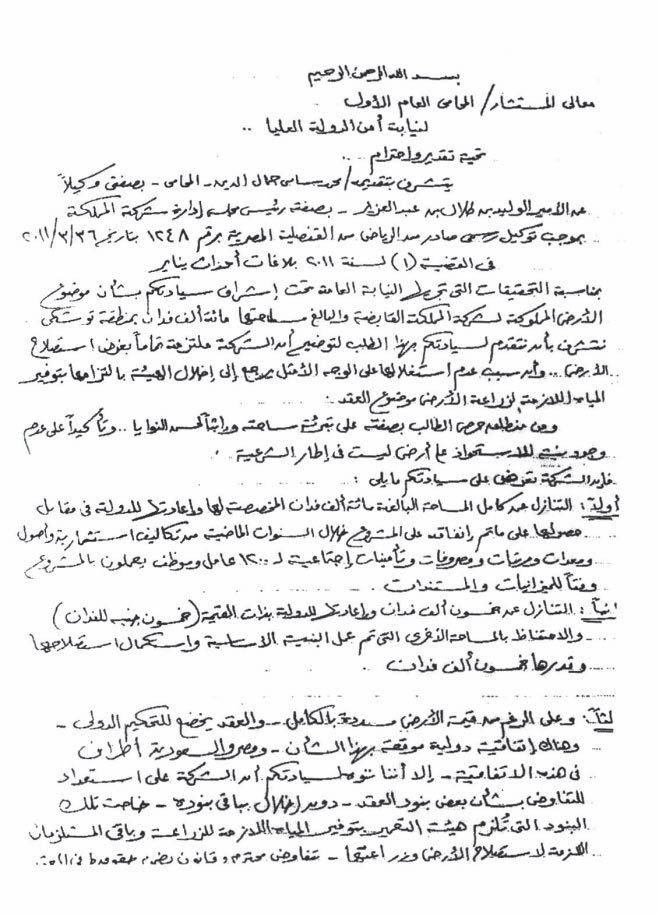 بسم الله الرحمن الرحيم
معالى المستشار / المحامى العام الأول
لنيابة أمن الدولة العليا ..
تحية تقدير واحترام ..
يتشرف بتقديمه / محمد سامى جمال الدين - المحامى - بصفتى وكيلاً
عن الأمير الوليد بن طلال بن عبد العزيز - بصفته رئيس مجلس إدارة شركة المملكة
بموجب توكيل رسمى صادر من الرياض من القنصلية المصرية برقم ١٢٤٨ بتاريخ ٢٠١١/٣/٢٦
فى القضية (١) لسنة ٢٠١١ بلاغات أحداث يناير
بمناسبة التحقيقات التى تجريها النيابة العامة تحت إشراف سيادتكم بشأن موضوع
الأرض المملوكة لشركة المملكة القابضة والبالغ مساحتها مائة ألف فدان بمنطقة توشكى
نتشرف بأن نتقدم لسيادتكم بهذا الطلب لتوضيح أن الشركة ملتزمة تماماً بغرض استصلاح
الأرض .. وأن سبب عدم استغلالها على الوجه الأمثل يرجع إلى إخلال الهيئة بالتزامها بتوفير
المياه اللازمة لزراعة الأرض موضوع العقد .
ومن منطلق حرص الطالب بصفته على تبرئة ساحته وإثباتاً لحسن النوايا .. وتأكيداً على عدم
وجود نية للاستحواذ على أرض ليست فى إطار الشرعية .
فإن الشركة تعرض على سيادتكم ما يلى :
أولاً : التنازل عن كامل المساحة البالغة مائة ألف فدان المخصصة لها وإعادتها للدولة فى مقابل
حصولها على ما تم إنفاقه على المشروع خلال السنوات الماضية من تكاليف استثمارية وأصول
ومعدات ومرتبات ومصروفات وتأمينات إجتماعية لـ ١٢٠٠ عامل وموظف يعملون بالمشروع
وفقاً للميزانيات والمستندات .
انياً : التنازل عن خمسون ألف فدان وإعادتها للدولة بذات القيمة (خمسون جنيه للفدان)
- والاحتفاظ بالمساحة الأخرى التى تم عمل البنية الأساسية واستكمال استصلاحها
وقدرها خمسون ألف فدان .
لثاً : وعلى الرغم من قيمة الأرض مسددة بالكامل - والعقد يخضع للتحكيم الدولى -
وهناك إتفاقية دولية موقعة بهذا الشأن - ومصر والسعودية أطراف
فى هذه الاتفاقية - إلا أننا ننوه لسيادتكم أن الشركة على استعداد
للتفاوض بشأن بعض بنود العقد - دون إخلال بباقى بنوده - خاصة تلك
البنود التى تُلزم هيئة التعمير بتوفير المياه اللازمة للزراعة وباقى المستلزمات
اللازمة لاستصلاح الأرض وزراعتها - تفاوض محترم وقانونى